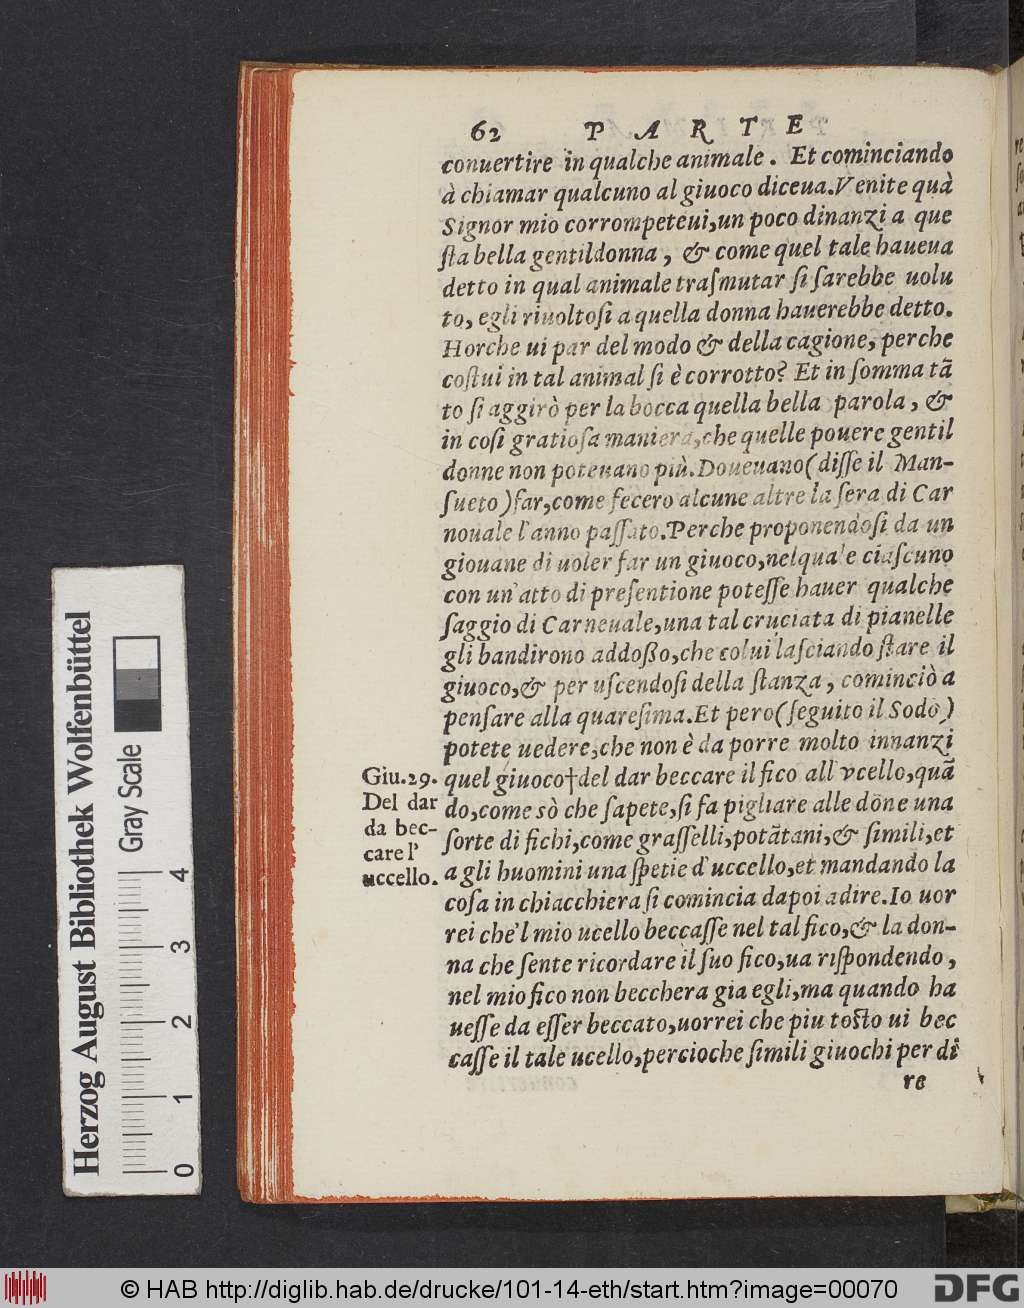 62 PARTE
conuertire in qualche animale. Et cominciando
à chiamar qualcuno al giuoco diceua.Venite quà
Signor mio corrompeteui,un poco dinanzi a que
ſta bella gentildonna, & come quel tale haueua
detto in qual animale traſmutar ſi ſarebbe uolu
to, egli riuoltoſi a quella donna hauerebbe detto.
Horche ui par del modo & della cagione, perche
coſtui in tal animal ſi è corrotto? Et in ſomma tã
to ſi aggirò per la bocca quella bella parola, &
in coſi gratioſa maniera,che quelle pouere gentil
donne non poteuano più.Doueuano(diſſe il Man-
ſueto)far,come fecero alcune altre la ſera di Car
nouale l'anno paſſato.Perche proponendoſi da un
giouane di uoler far un giuoco,nelquale ciaſcuno
con un'atto di preſentione poteſſe hauer qualche
ſaggio di Carneuale,una tal cruciata di pianelle
gli bandirono addoßo,che colui laſciando ſtare il
giuoco,& per uſcendoſi della ſtanza, cominciò a
penſare alla quareſima.Et pero(ſeguito il Sodo)
potete uedere,che non è da porre molto innanzi
Giu.29. quel giuoco†del dar beccare il fico all'vcello,quã
Del dar do,come sò che ſapete,ſi fa pigliare alle dõne una
da bec- ſorte di fichi,come graſſelli,potãtani,& ſimili,et
care l' a gli huomini una ſpetie d'uccello,et mandando la
uccello. coſa in chiacchiera ſi comincia dapoi a dire.Io uor
rei che'l mio ucello beccaſſe nel tal fico,& la don-
na che ſente ricordare il ſuo fico,ua riſpondendo,
nel mio fico non becchera gia egli,ma quando ha
ueſſe da eſſer beccato,uorrei che piu toſto ui bec
caſſe il tale ucello,percioche ſimili giuochi per di
re
Herzog August Bibliothek Wolfenbüttel
Gray Scale
0 1 2 3 4
© HAB http://diglib.hab.de/drucke/101-14-eth/start.htm?image=00070
DFG